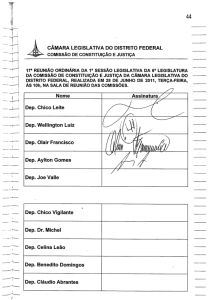 44
CÂMARA LEGISLATIVA DO DISTRITO FEDERAL
COMISSÃO DE CONSTITUIÇÃO E JUSTIÇA
17ª REUNIÃO ORDINÁRIA DA 1ª SESSÃO LEGISLATIVA DA 6ª LEGISLATURA
DA COMISSÃO DE CONSTITUIÇÃO E JUSTIÇA DA CÂMARA LEGISLATIVA DO
DISTRITO FEDERAL, REALIZADA EM 28 DE JUNHO DE 2011, TERÇA-FEIRA,
ÀS 10h, NA SALA DE REUNIÃO DAS COMISSÕES.
Nome Assinatura
Dep. Chico Leite
Dep. Wellington Luiz
Dep. Olair Francisco
Dep. Aylton Gomes
Dep. Joe Valle
Dep. Chico Vigilante
Dep. Dr. Michel
Dep. Celina Leão
Dep. Benedito Domingos
Dep. Cláudio Abrantes